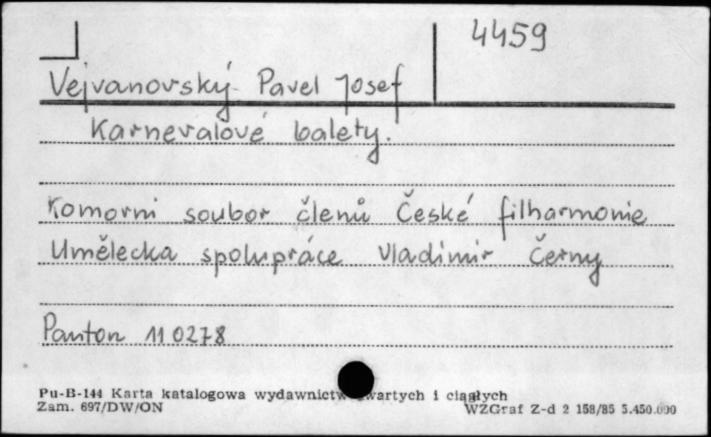 4459
Vejvanovský Pavel Josef
Karnevalové balety.
Komorni soubor členů České filharmonie
Umělecka spolupráce Vladimir Černy
Panton 11 0278
Pu-B-144 Karta katalogowa wydawnictw zwartych i ciągłych
Zam. 697/DW/ON WZGraf Z-d 2 158/85 5.450.000